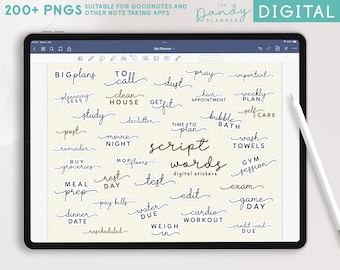 200+ PNGS
SUITABLE FOR GOODNOTES AND
OTHER NOTE TAKING APPS
THE
Dandy
PLANNER
DIGITAL
My Planner
BIG plans
TO
CALL
dust
pray
important
planning
SESH
clean
HOUSE
GET fit
hair
APPOINTMENT
weekly
PLAN
study
declutter
TIME TO
plan
bubble
BATH
self
CARE
post
movie
NIGHT
script
words
digital stickers
wash
TOWELS
reminder
BUY
groceries
MOP floors
GYM
session
MEAL
prep
rest
DAY
test
edit
exam
pay bills
water
DUE
game
DAY
dinner
DATE
cardio
WORKOUT
rescheduled
WEIGH
in
credit card
DUE